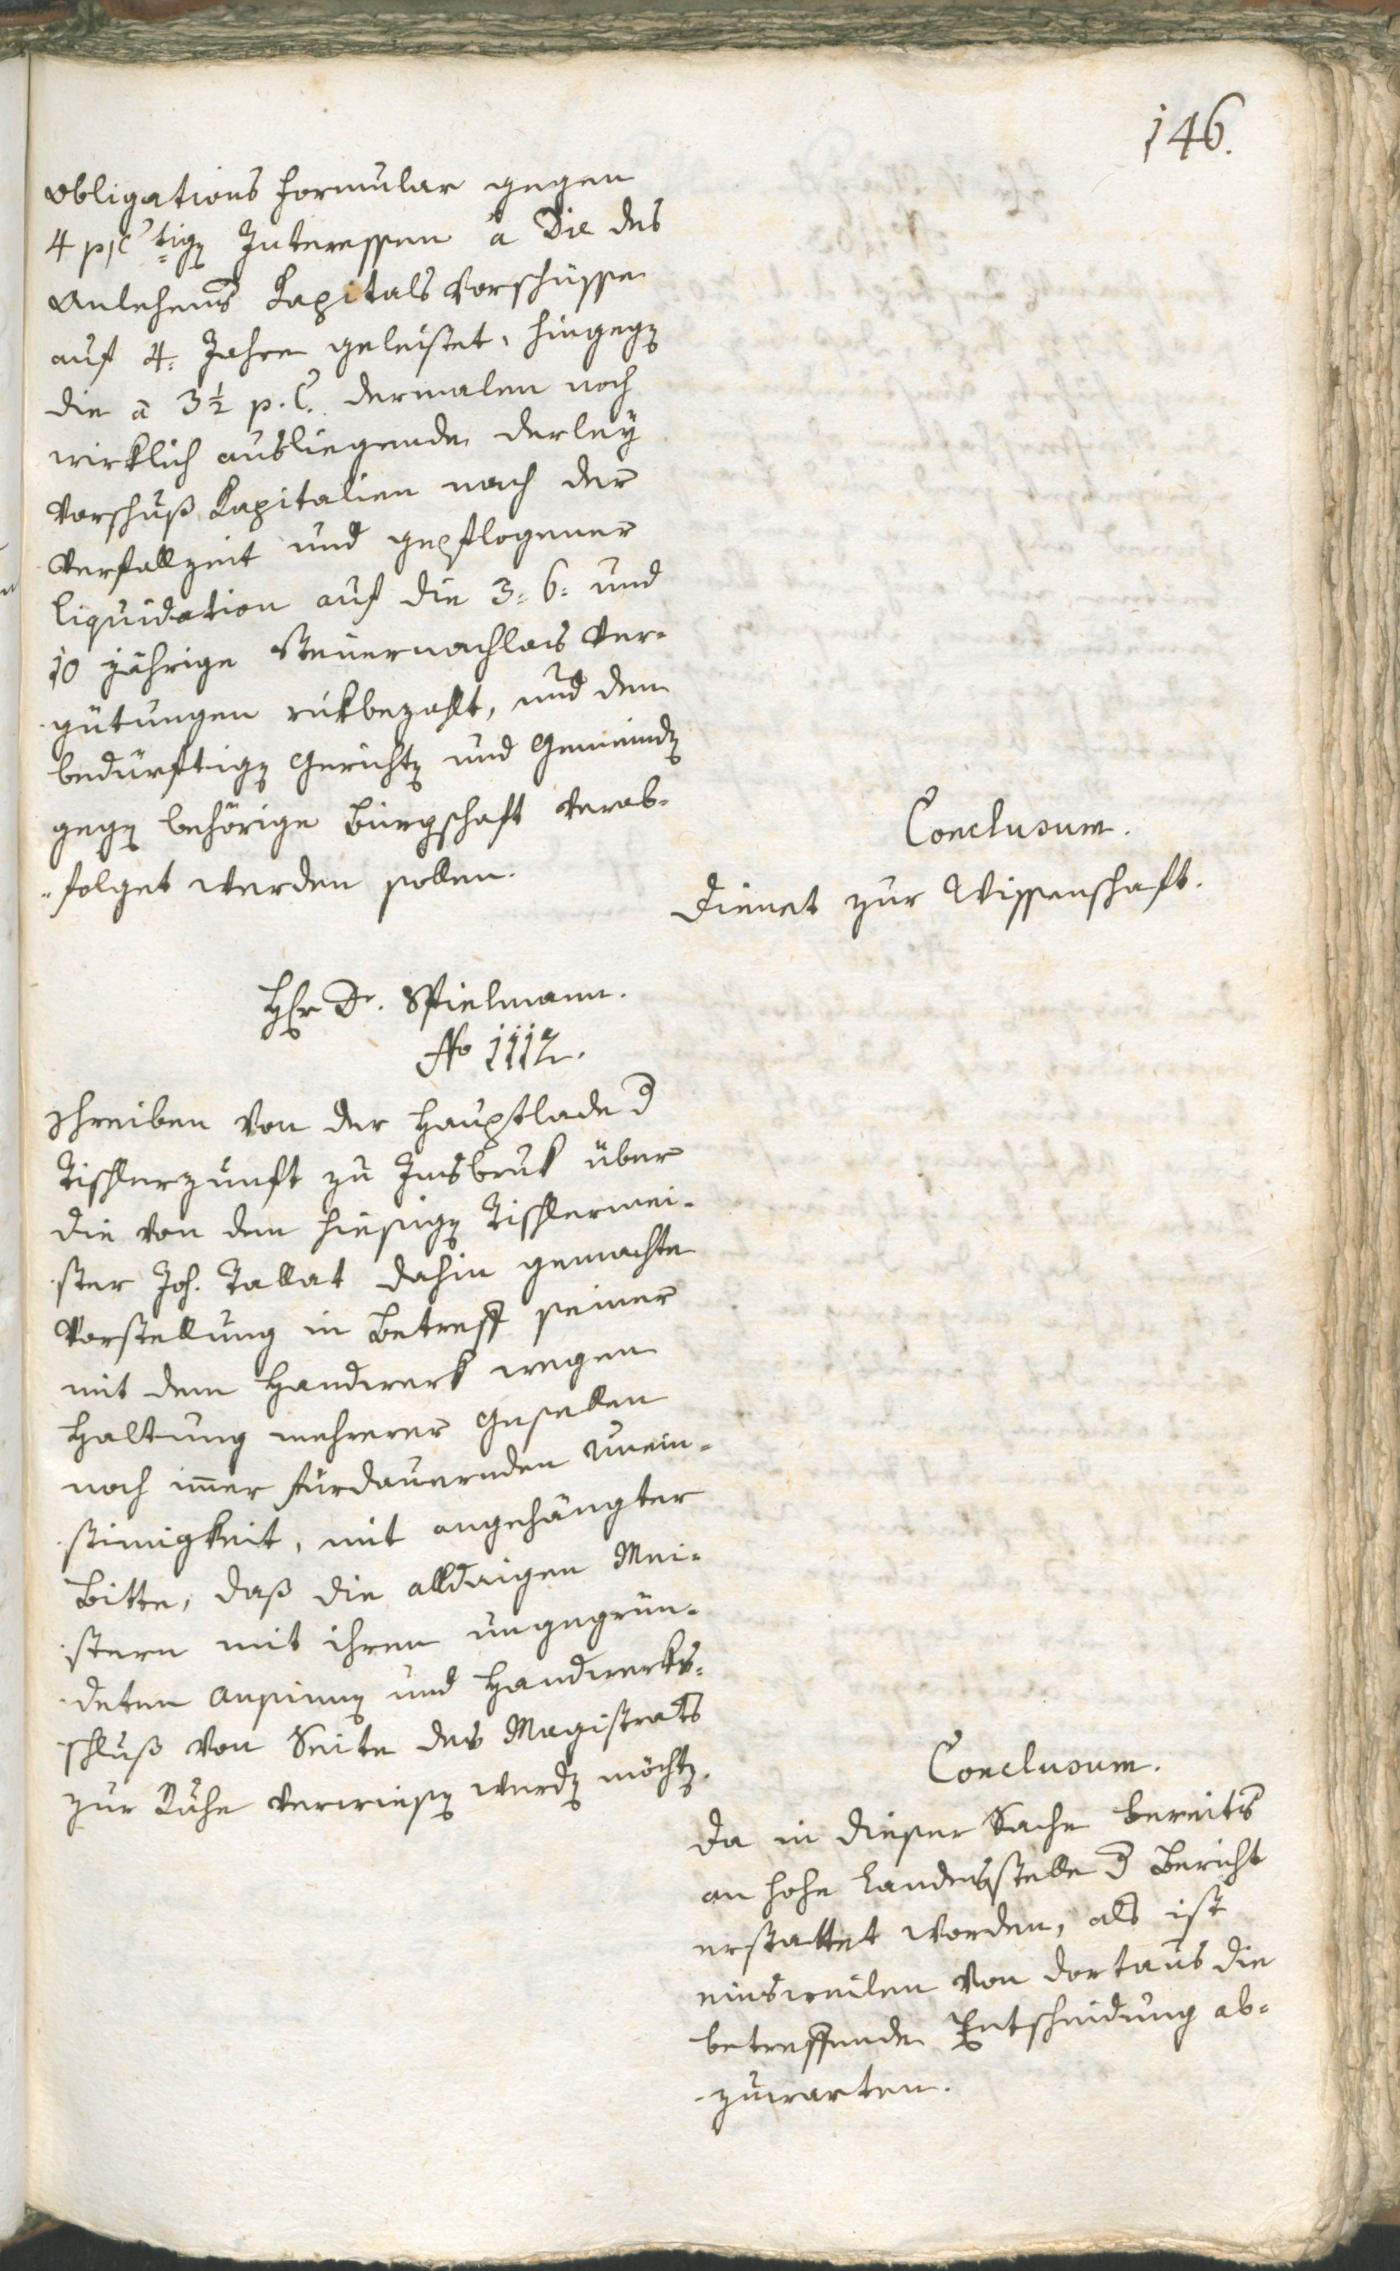 146.
Obligations Formular gegen
4 p.C tigen Interessen a Die des
Anlehens Kapitals Vorschüsse
auf 4. Jahre geleistet, hingegen
die a 3½ p. C. dermalen noch
wirklich ausliegende derley
Vorschuß Kapitalien nach der
Verfallzeit und gepflogener
Liquidation auf die 3. 6. und
10 jährige Steuernachlas Ver-
gütungen rükbezahlt, und dem
bedürftigen Gerichten und Gemeinden
gegen behörige Bürgschaft verab-
folget werden sollen.
Conclusum.
Dienet zur Wissenschaft.
Hr Dr. Spielmann.
No 1112.
Schreiben von der Hauptlade d
Tischlerzunft zu Insbruk über
die von dem hiesigen Tischlermei-
ster Joh. Tallat dahin gemachte
Vorstellung in Betreff seiner
mit dem Handwerk wegen
Haltung mehrerer Gesellen
noch imer fürdauernden Unein-
stimigkeit, mit angehängter
Bitte, daß die alldaigen Mei-
stern mit ihren ungegrün-
deten Ansinnen und Handwerks-
schluß von Seite des Magistrats
zur Ruhe verwiesen werden möchten.
Conclusum.
Da in dieser Sache bereits
an hohe Landesstelle d Bericht
erstattet worden, als ist
einsweilen von dortaus die
betreffende Entscheidung ab-
zuwarten.